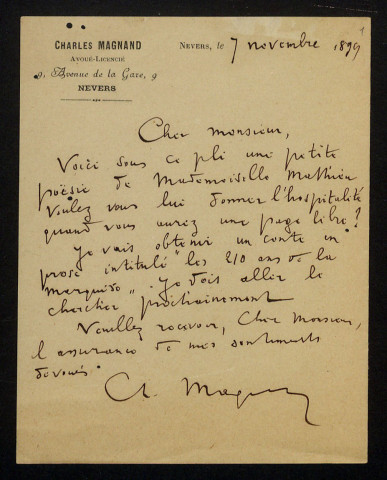 CHARLES MAGNAND
AVOUÉ-LICENCIÉ
9, Avenue de la Gare, 9
NEVERS
NEVERS, le 7 novembre 1899
Cher monsieur,
Voici sous ce pli une petite
poësie de Mademoiselle Mathieu
Voulez vous lui donner l'hospitalité
quand vous aurez une page libre?
Je vais obtenir un conte en
prose intitulé "les 210 ans de la
marquise„. Je dois aller le
chercher prochainement
Veuillez recevoir, Cher Monsieur,
l'assurance de mes sentiments
dévoués.
Ch. Magnand